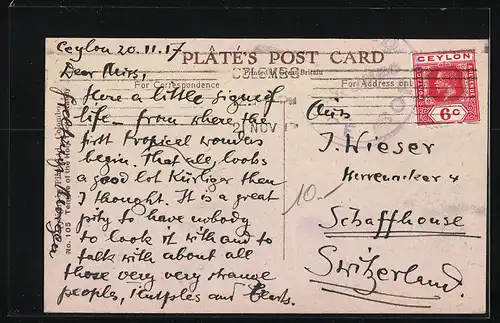 Ceylon 20.11.17
PLÂTÉ'S POST CARD
Printed in Great Britain
For Correspondence
For Address only
COLOMBO
NOV
CEYLON
6c
Dear Miss,
Here a little sign of
life - from where the
first tropical wonders
begin. That all, loobs
a good lot then
I thought. It is a great
pity to have nobody
to look it with and to
talk with about all
those very very strange
peoples, and beasts.
Miss
J. Wieser
Herrenacker 4
Schaffhouse
Switzerland.
10.-
No. 105